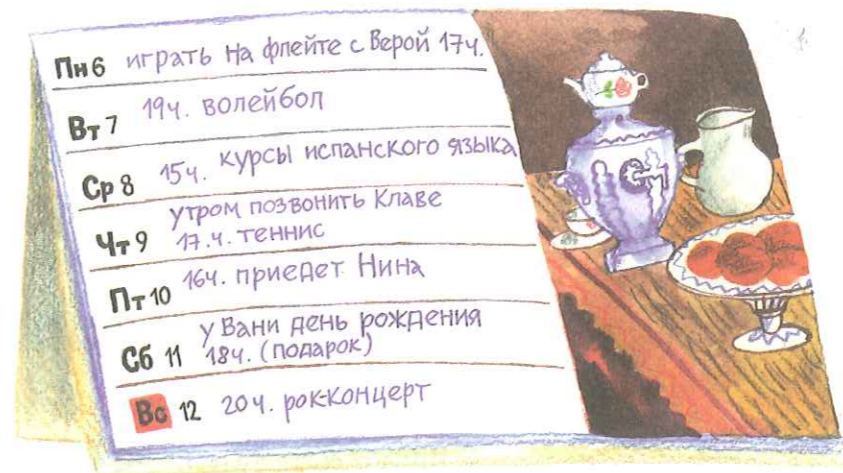 Пн 6 играть на флейте с Верой 17ч.
Вт 7 19ч. волейбол
Ср 8 15ч. курсы испанского языка
утром позвонить Клаве
Чт 9 17.ч. теннис
Пт 10 16ч. приедет Нина
у Вани день рождения
Сб 11 18ч. (подарок)
Вс 12 20ч. рок-концерт